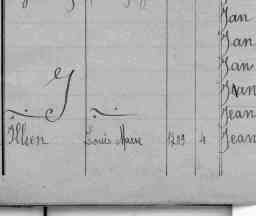 Jan
Jan
Jan
Jan
J
Jean
Illien Louis Marie 1293 4 Jean